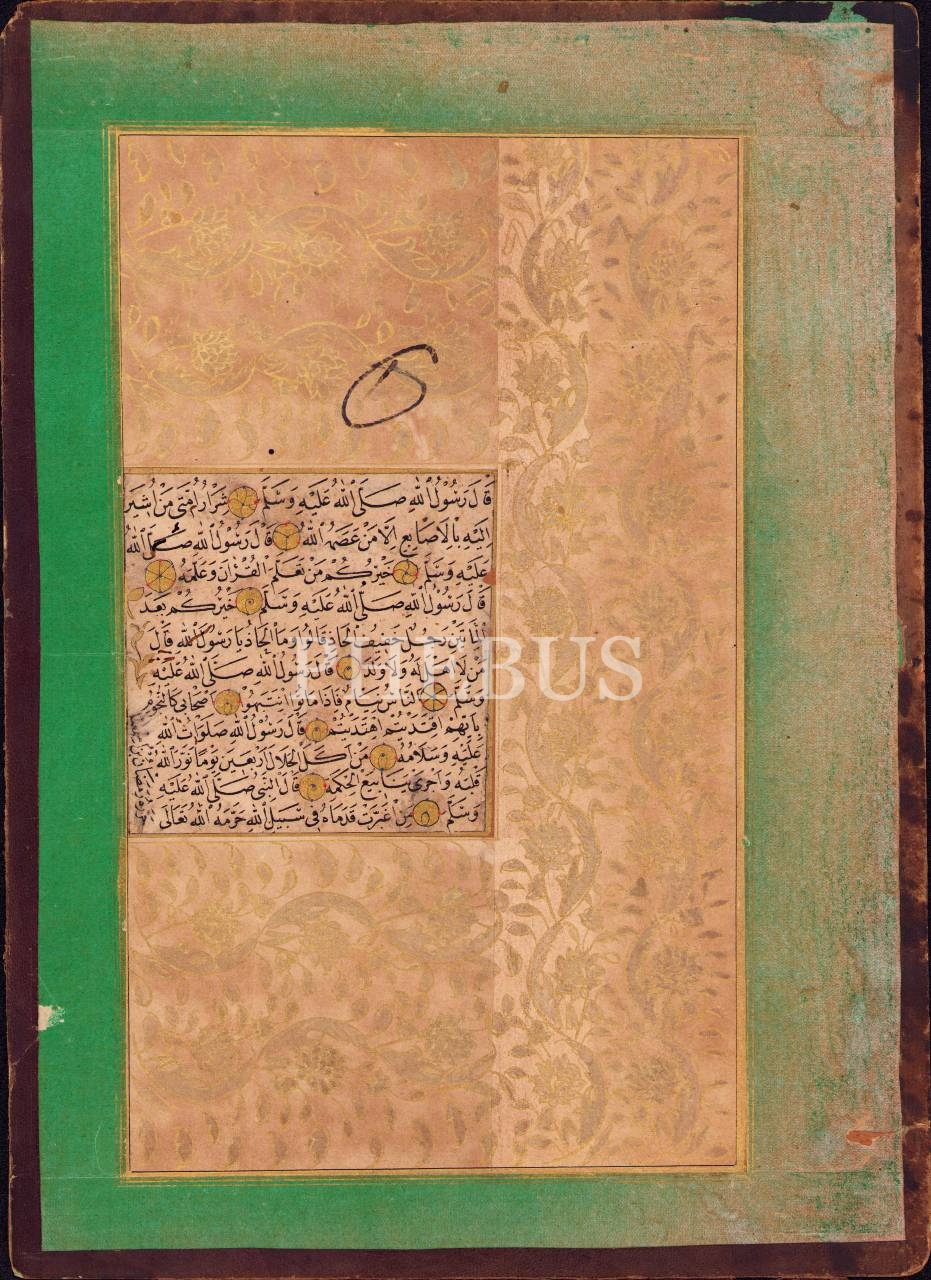 قَالَ رَسُولُ اللهِ صَلَّى اللهُ عَلَيْهِ وَسَلَّمَ شِرَارُ اُمَّتِى مَنْ اُشِيرَ
اِلَيْهِ بِالْاَصَابِعِ اِلَّا مَنْ عَصَمَهُ اللهُ قَالَ رَسُولُ اللهِ صَلَّى اللهُ
عَلَيْهِ وَسَلَّمَ خَيْرُكُمْ مَنْ تَعَلَّمَ الْقُرْاٰنَ وَعَلَّمَهُ
قَالَ رَسُولُ اللهِ صَلَّى اللهُ عَلَيْهِ وَسَلَّمَ خَيْرُكُمْ بَعْدَ
رَجُلٌ خَفِيفُ الْحَاذِ قَالُوا وَمَا الْحَاذُ يَا رَسُولَ اللهِ قَالَ
مَنْ لَا اَهْلَ لَهُ وَلَا وَلَدَ قَالَ رَسُولُ اللهِ صَلَّى اللهُ عَلَيْهِ
وَسَلَّمَ النَّاسُ نِيَامٌ فَاِذَا مَاتُوا انْتَبَهُوا اَصْحَابِى كَالنُّجُومِ
بِاَيِّهِمْ اقْتَدَيْتُمْ اهْتَدَيْتُمْ قَالَ رَسُولُ اللهِ صَلَوَاتُ اللهِ
عَلَيْهِ وَسَلَامُهُ مَنْ اَكَلَ الْحَلَالَ اَرْبَعِينَ يَوْمًا نَوَّرَ اللهُ
قَلْبَهُ وَاَجْرَى يَنَابِيعَ الْحِكْمَةِ قَالَ النَّبِىُّ صَلَّى اللهُ عَلَيْهِ
وَسَلَّمَ مَنِ اغْبَرَّتْ قَدَمَاهُ فِى سَبِيلِ اللهِ حَرَّمَهُ اللهُ تَعَالَى
PHEBUS